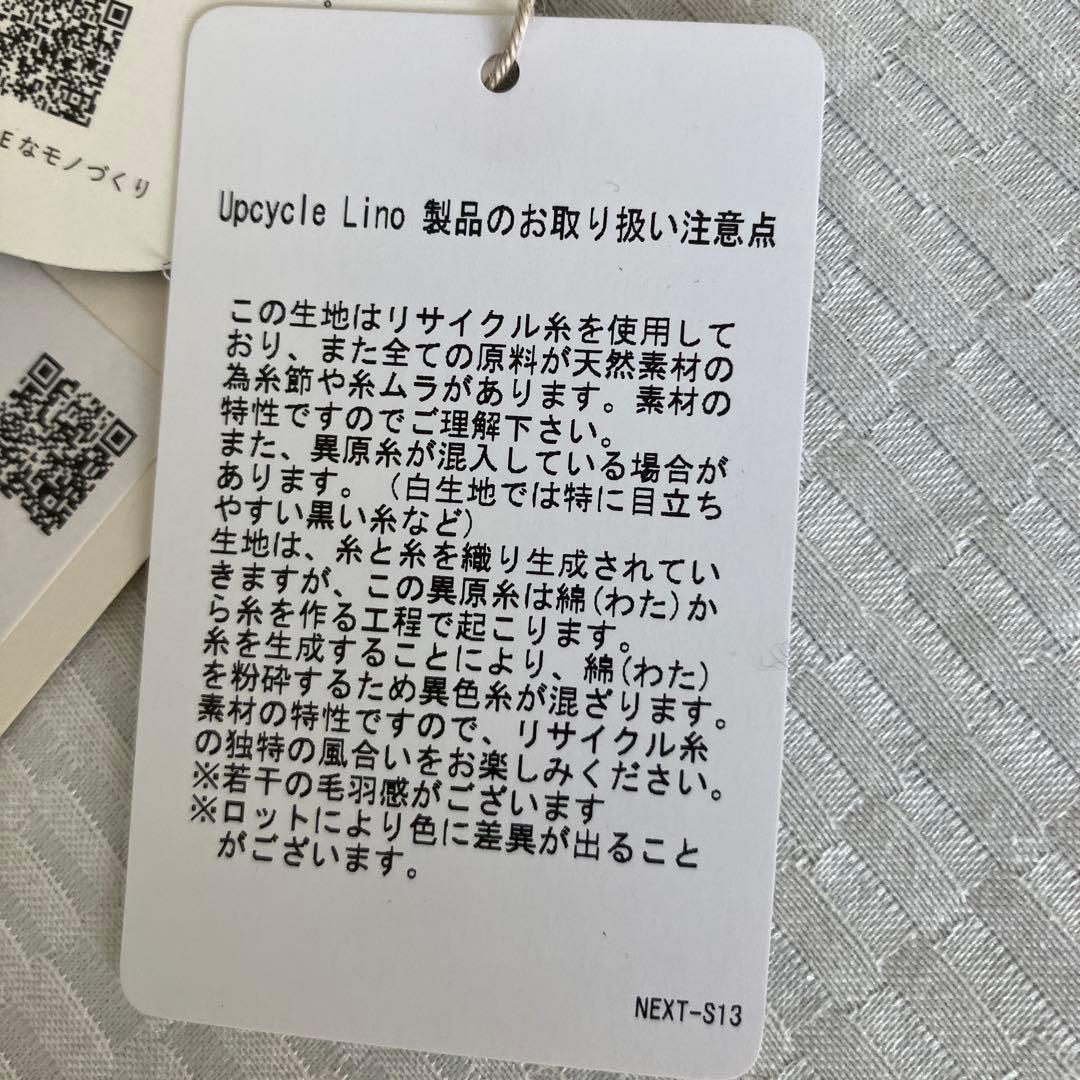 Eなモノづくり
Upcycle Lino 製品のお取り扱い注意点
この生地はリサイクル糸を使用して
おり、また全ての原料が天然素材の
為糸節や糸ムラがあります。素材の
特性ですのでご理解下さい。
また、異原糸が混入している場合が
あります。（白生地では特に目立ち
やすい黒い糸など）
生地は、糸と糸を織り生成されてい
きますが、この異原糸は綿(わた)か
ら糸を作る工程で起こります。
糸を生成することにより、綿(わた)
を粉砕するため異色糸が混ざります。
素材の特性ですので、リサイクル糸
の独特の風合いをお楽しみください。
※若干の毛羽感がございます
※ロットにより色に差異が出ること
がございます。
NEXT-S13